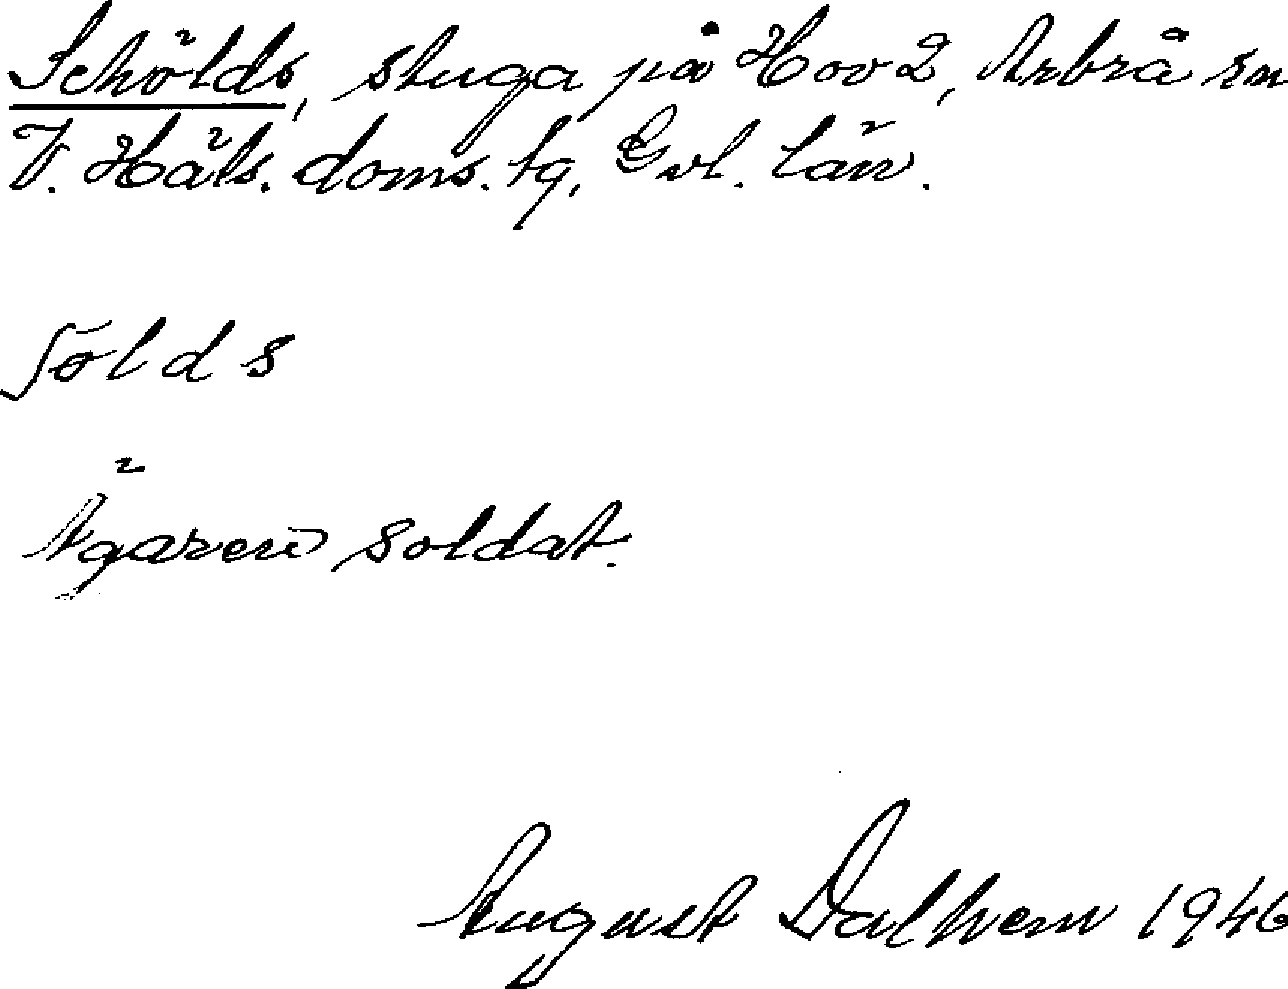 Schölds, stuga på Hov 2, Arbrå sn
V. Häls. doms. tg, Gvl. län.
ʃölds
Ägaren soldat.
August Dalhem 1946